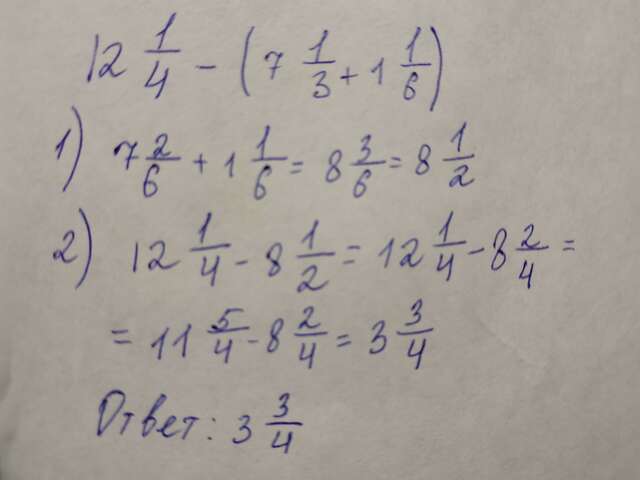 12 1/4 - (7 1/3 + 1 1/6)
1) 7 2/6 + 1 1/6 = 8 3/6 = 8 1/2
2) 12 1/4 - 8 1/2 = 12 1/4 - 8 2/4 =
= 11 5/4 - 8 2/4 = 3 3/4
Ответ: 3 3/4